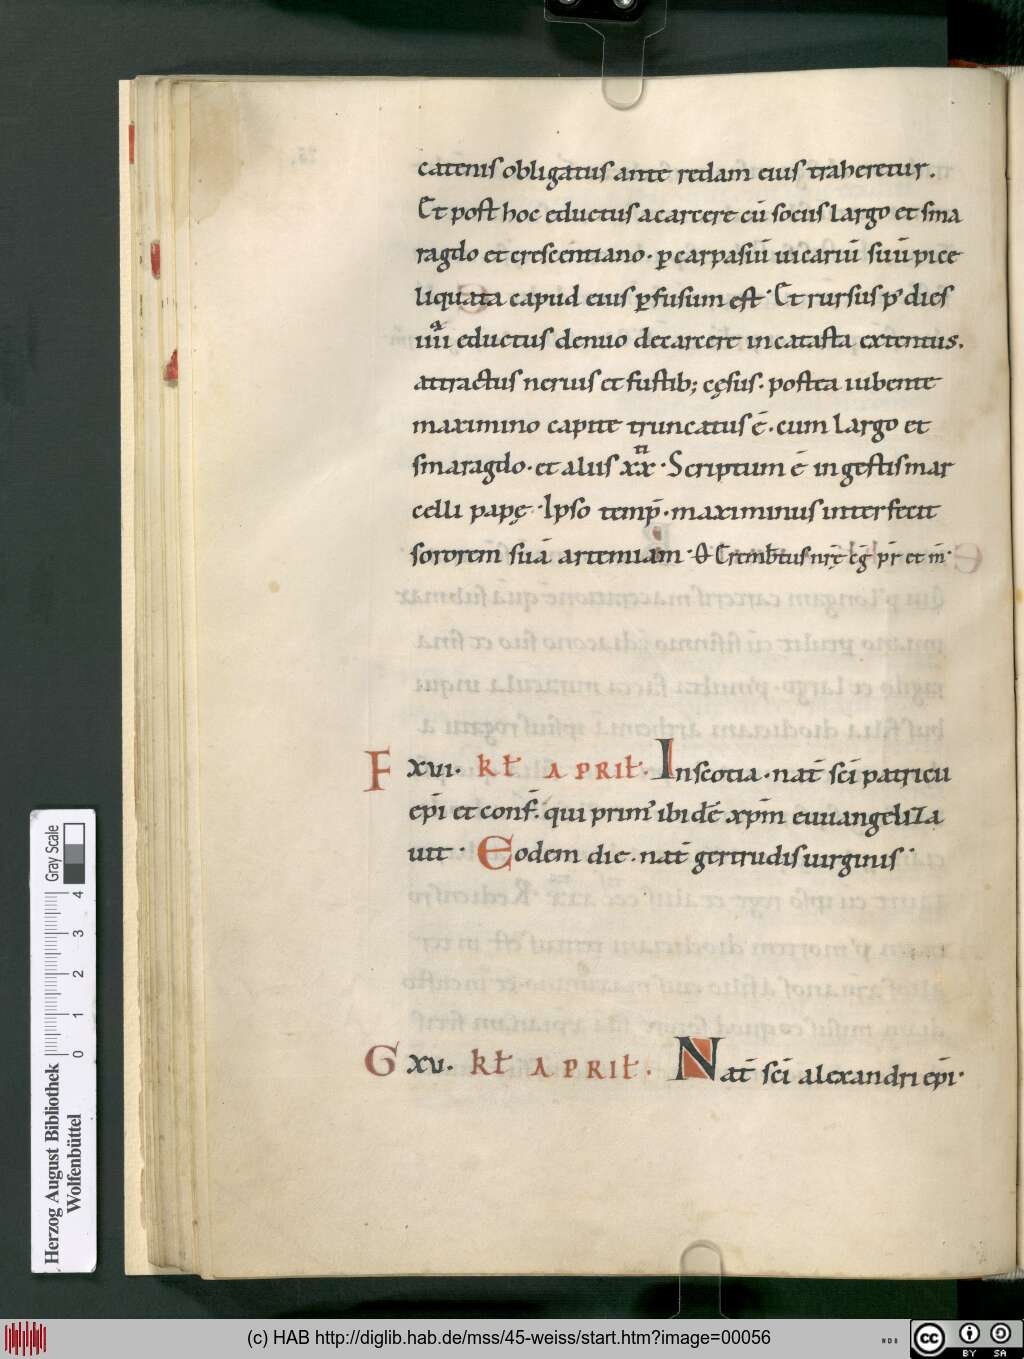 catenis obligatus ante redam eius traheretur.
Et post hoc eductus a carcere cū sociis largo et sma
ragdo et crescentiano · p carpasiū uicariū suū pice
liquata capud eius pfusum est · Et rursus p' dies
iiii eductus denuo de carcere in catasta extentus.
attractus neruis et fustib; cęsus · postea iubente
maximino capite truncatus ē · cum largo et
smaragdo · et aliis xx ti · Scriptum ē in gestis mar
celli papę · Ipso temp̄ · maximinus interfecit
sororem suā artemiam ·
F xvi · kł APRIł · In scotia · nat̄ sc̄i patricii
ep̄i et conf̄ · qui prim' ibidē xp̄m euuangeliza
uit · Eodem die · nat̄ gertrudis uirginis ·
G xv · kł APRIł · Nat̄ sc̄i alexandri ep̄i ·
Gray Scale
0 1 2 3 4
Herzog August Bibliothek
Wolfenbüttel
(c) HAB http://diglib.hab.de/mss/45-weiss/start.htm?image=00056
WDB
cc
BY SA